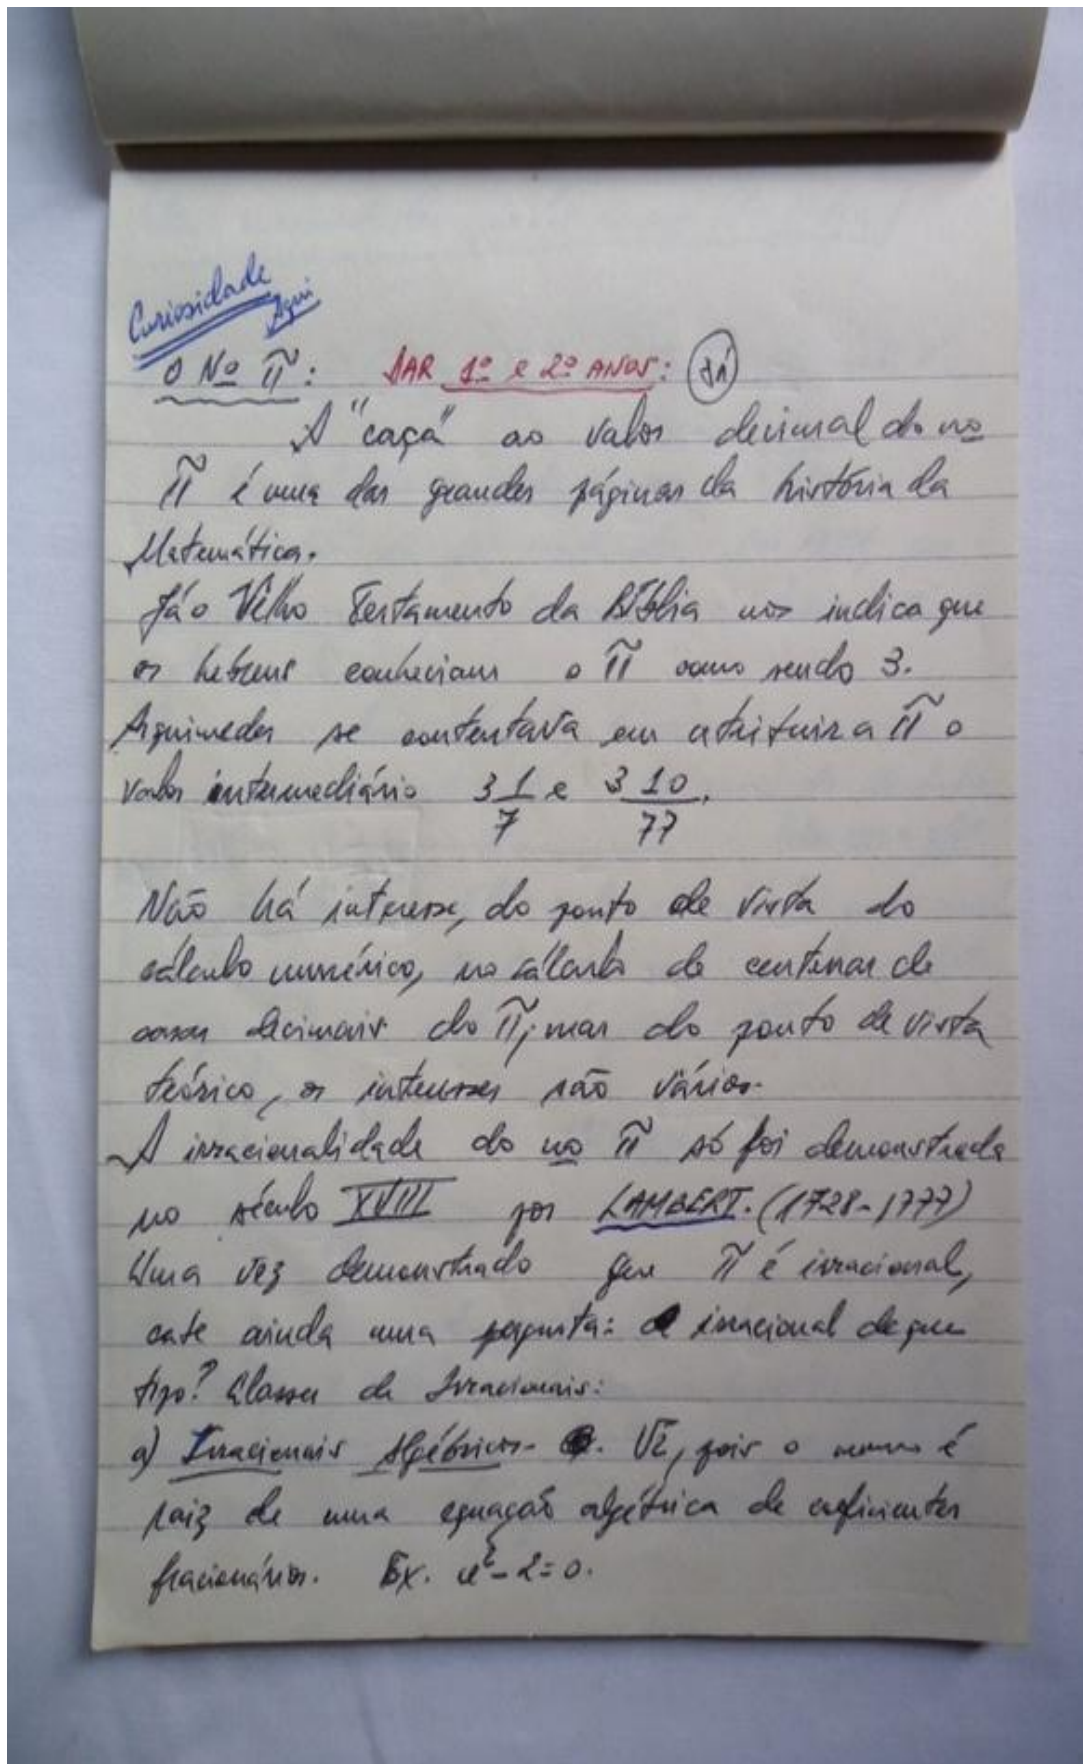 Curiosidade
Aqui
O Nº π: DAR 1º e 2º ANOS: Já
A "caça" ao valor decimal do no
π é uma das grandes páginas da história da
Matemática.
Já o Velho Testamento da Bíblia nos indica que
os hebreus conheciam o π como sendo 3.
Arquimedes se contentava em atribuir a π o
valor intermediário 3 1/7 e 3 10/77.
Não há interesse, do ponto de vista do
cálculo numérico, no cálculo de centenas de
casas decimais do π; mas do ponto de vista
teórico, os interesses são vários.
A irracionalidade do no π só foi demonstrada
no século XVIII por LAMBERT. (1728-1777)
Uma vez demonstrado que π é irracional,
cabe ainda uma pergunta: irracional de que
tipo? Classes de Irracionais:
a) Irracionais Algébricos- √2, pois o mesmo é
raiz de uma equação algébrica de coeficientes
fracionários. Ex. x²-2=0.